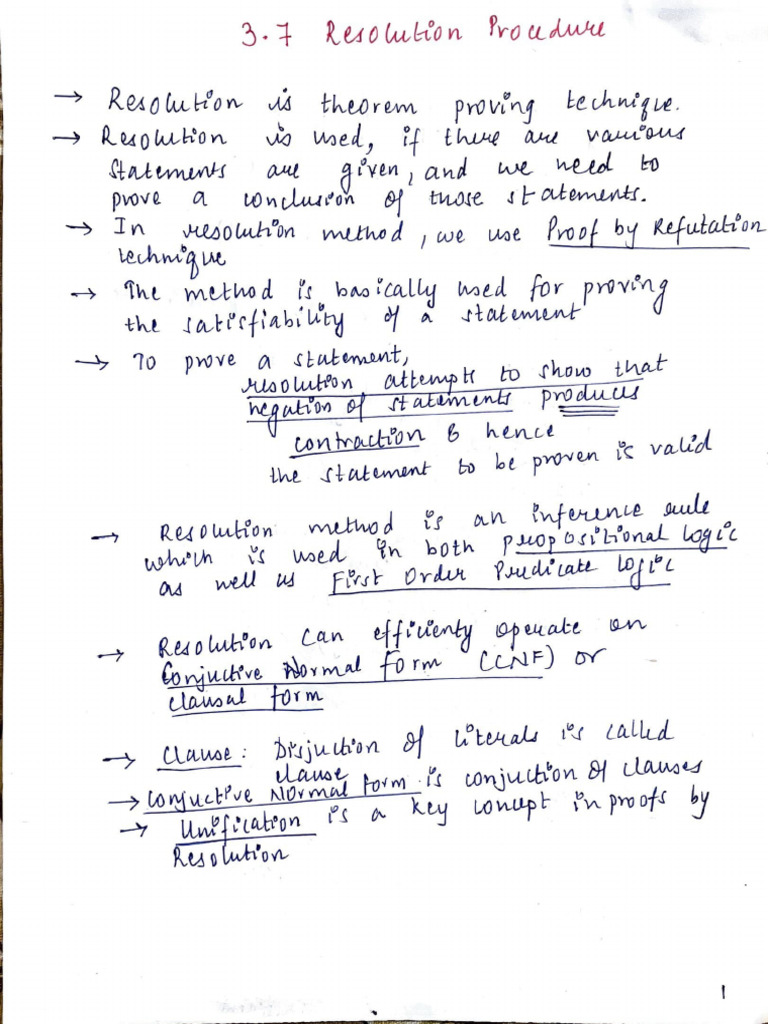 3.7 Resolution Procedure
→ Resolution is theorem proving technique.
→ Resolution is used, if there are various
statements are given, and we need to
prove a conclusion of those statements.
→ In resolution method, we use Proof by Refutation
technique
→ The method is basically used for proving
the satisfiability of a statement
→ To prove a statement,
resolution attempts to show that
negation of statements produces
contraction & hence
the statement to be proven is valid
→ Resolution method is an inference rule
which is used in both propositional logic
as well us First Order Predicate logic
→ Resolution can efficienty operate on
Conjuctive Normal form (CNF) or
clausal form
→ Clause: Disjuction of literals is called
clause
→ Conjuctive Normal form is conjuction of clauses
→ Unification is a key concept in proofs by
Resolution
1